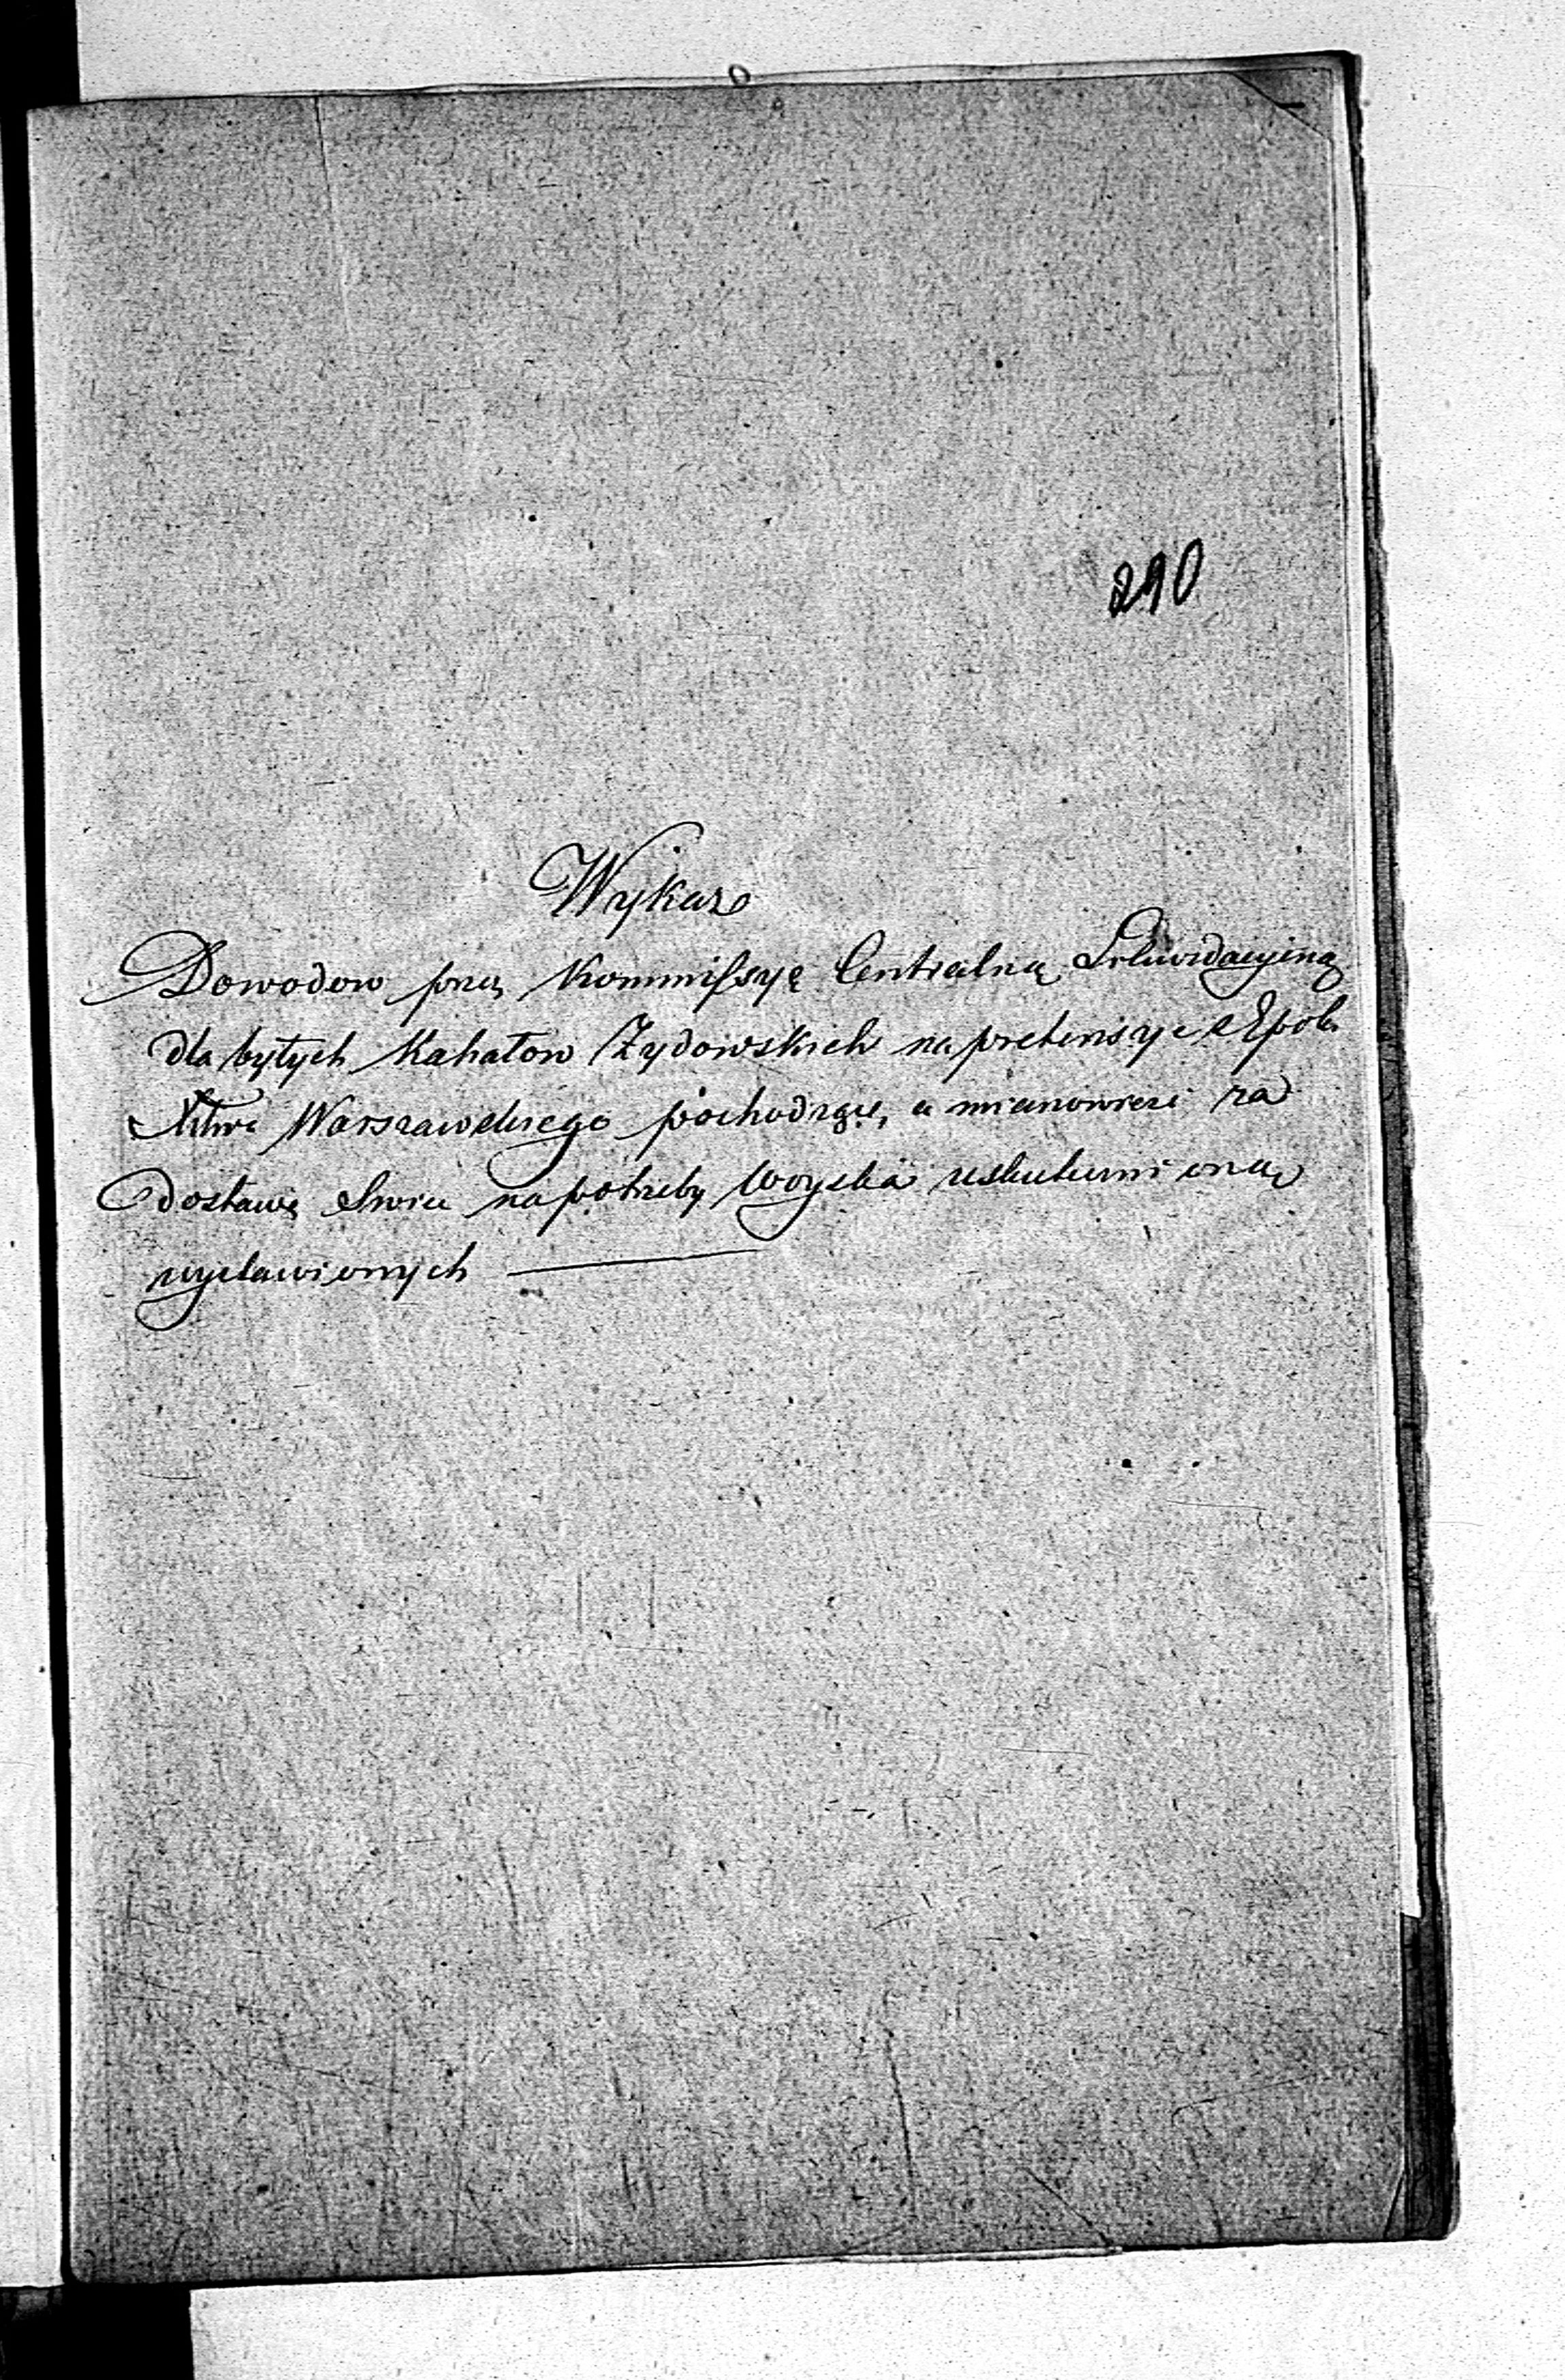 290
Wykaz
Dowodow przez Kommissyę Centralną Likwidacyjną
dla byłych Kahałow Żydowskich na pretensye z Epoki
Xstwa Warszawskiego pochodzące, a mianowicie za
Dostawę na potrzeby Woyska uskutecznioną
wystawionych